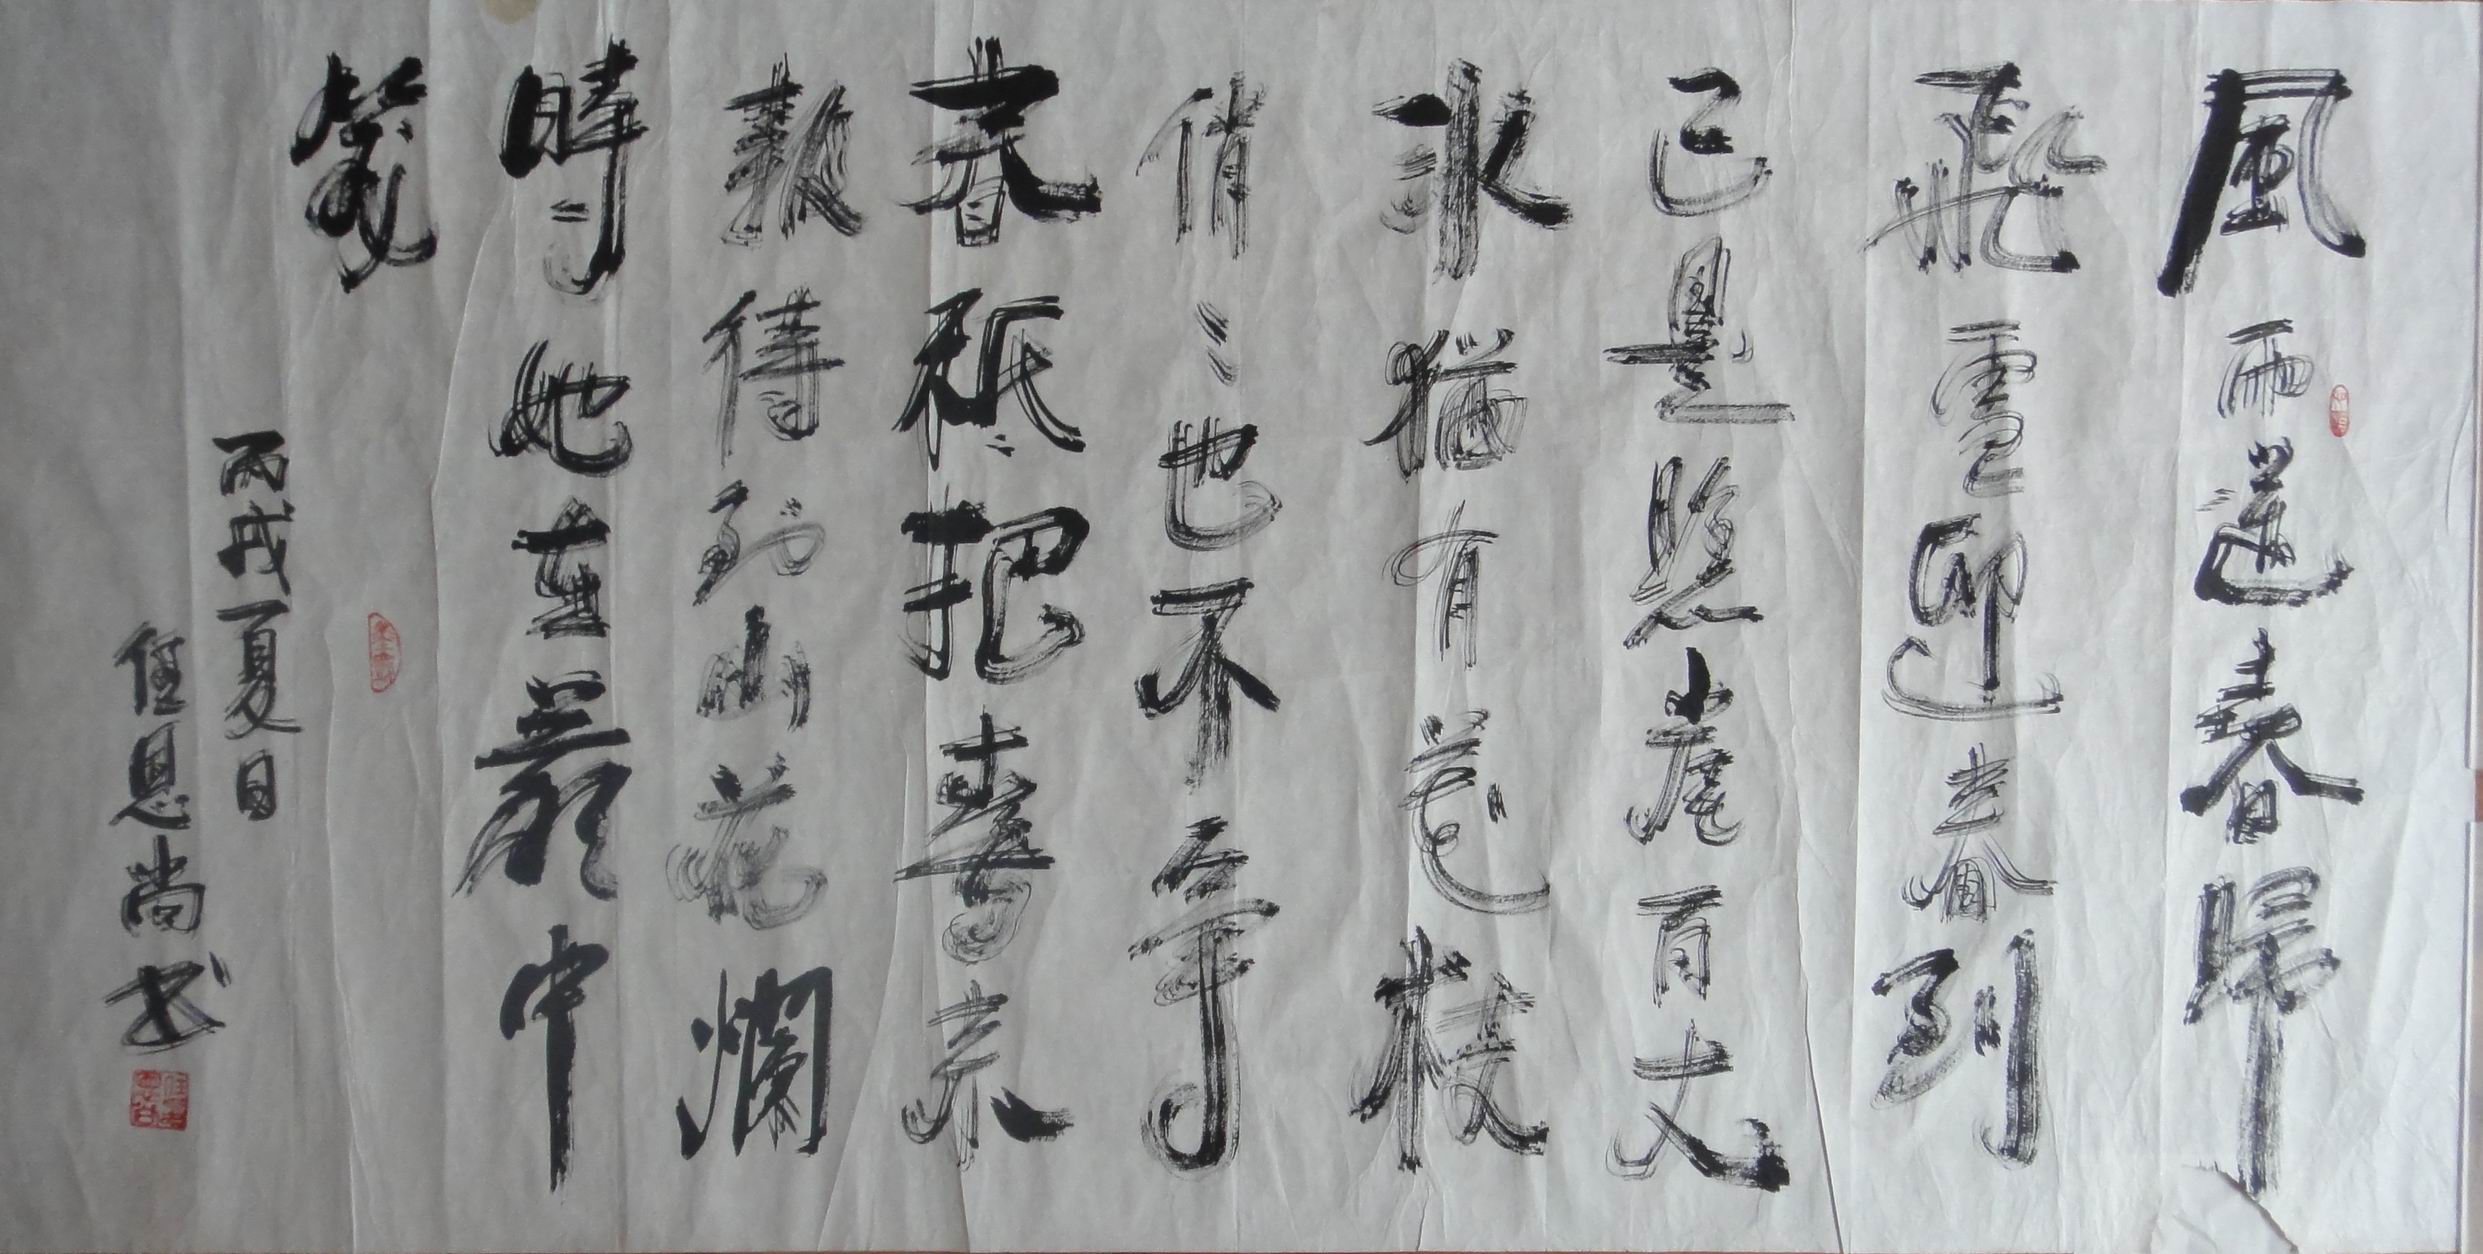 風雨送春歸
飛雪迎春到
已是懸崖百丈
冰猶有花枝
俏〻也不爭
春秖把春来
報待到山花爛
時她在叢中
笑
丙戌夏日
任恩尚书